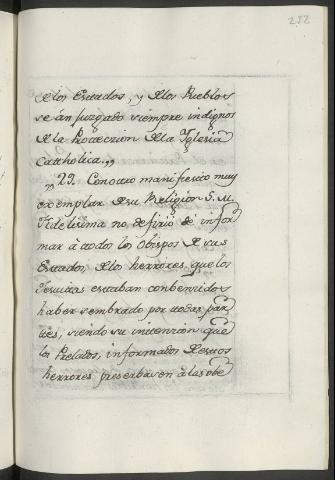 252
de los Estados, y de los Pueblos
se án juzgado siempre indignos
de la Proteccion de la Iglesia
Catholica.,,
,, 29. Con otro manifiesto muy
exemplar de su Religion S. M.
Fidelisima no defirió de infor
mar à todos los Obispos de sus
Estados, de los herrores, que los
Jesuitas estaban combencidos
haber sembrado por todas par
tes, siendo su intencion que
los Prelados, informados de estos
herrores preserbasen à las obe